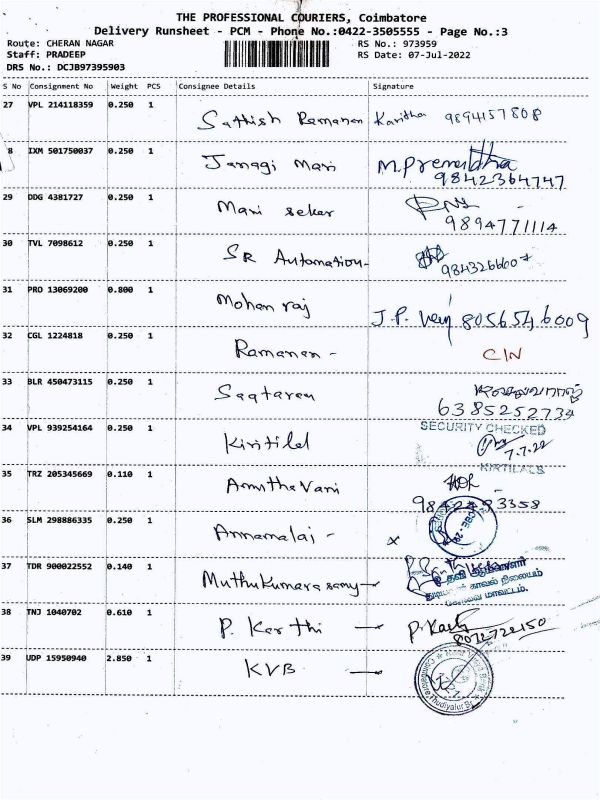 THE PROFESSIONAL COURIERS, Coimbatore
Delivery Runsheet - PCM - Phone No.:0422-3505555 - Page No.:3
Route: CHERAN NAGAR RS No.: 973959
Staff: PRADEEP RS Date: 07-Jul-2022
DRS No.: DCJB97395903
S No Consignment No Weight PCS Consignee Details Signature
27 VPL 214118359 0.250 1
Sathish Ramanan Kavitha 9894157808
8 IXM 501750037 0.250 1
Janagi Mari M.Premlatha
9842364747
29 DDG 4381727 0.250 1
Mani sekar
9894771114
30 TVL 7098612 0.250 1
SR Automation-
31 PRO 13069200 0.800 1
Mohan raj J.P. 8056546009
32 CGL 1224818 0.250 1
Ramanan - CIN
33 BLR 450473115 0.250 1
6385252734
34 VPL 939254164 0.250 1 SECURITY CHECKED
Kirtilal 7.7.22
KIRTILALS
35 TRZ 205345669 0.110 1
Amutha Vani
36 SLM 298886335 0.250 1
Annamalai - x
37 TDR 900022552 0.140 1
Muthukumarasamy
காவல் நிலையம்
மாவட்டம்.
38 TNJ 1040702 0.610 1
P. Karthi — P.Karthi
8072722150
39 UDP 15950940 2.850 1
KVB —